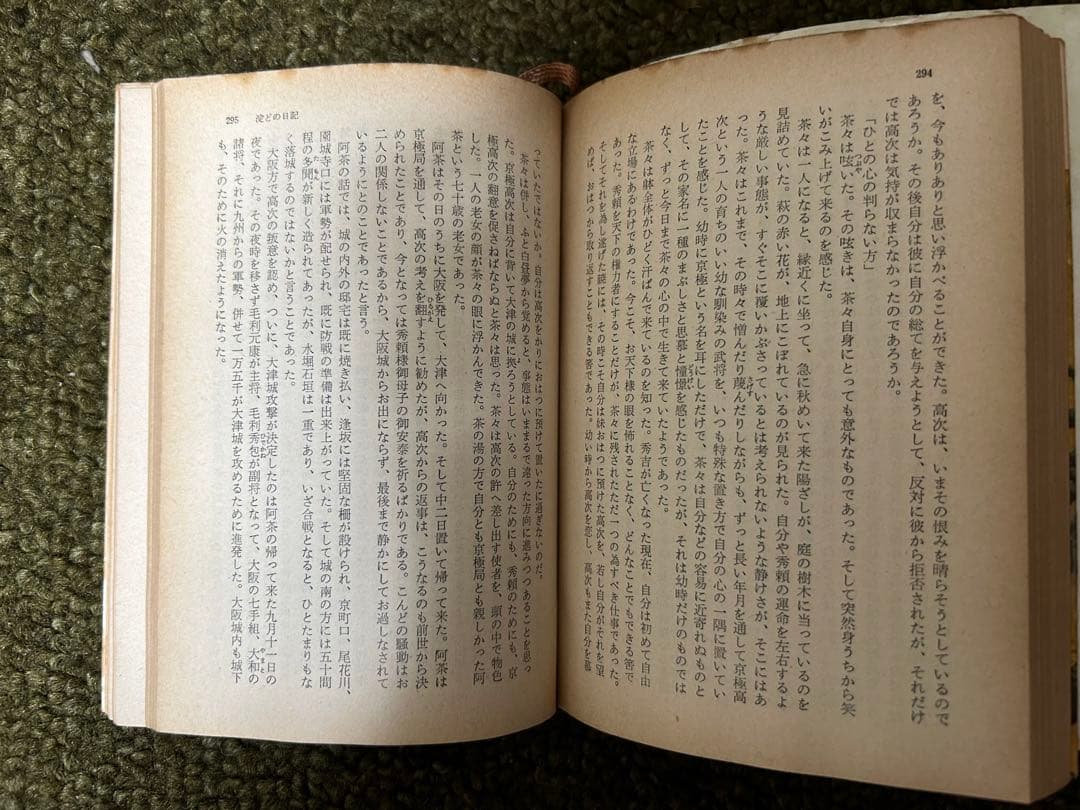 294
を、今もありありと思い浮かべることができた。高次は、いまその恨みを晴らそうとしているので
あろうか。その後自分は彼に自分の総てを与えようとして、反対に彼から拒否されたが、それだけ
では高次は気持が収まらなかったのであろうか。
「ひとの心の判らない方」
茶々は呟いた。その呟きは、茶々自身にとっても意外なものであった。そして突然身うちから笑
いがこみ上げて来るのを感じた。
茶々は一人になると、縁近くに坐って、急に秋めいて来た陽ざしが、庭の樹木に当っているのを
見詰めていた。萩の赤い花が、地上にこぼれているのが見られた。自分や秀頼の運命を左右するよ
うな厳しい事態が、すぐそこに覆いかぶさっているとは考えられないような静けさが、そこにはあ
った。茶々はこれまで、その時々で憎んだり蔑んだりしながらも、ずっと長い年月を通して京極高
次という一人の育ちのいい幼な馴染みの武将を、いつも特殊な置き方で自分の心の一隅に置いてい
たことを感じた。幼時に京極という名を耳にしただけで、茶々は自分などの容易に近寄れぬものと
して、その家名に一種のまぶしさと思慕と憧憬を感じたものだったが、それは幼時だけのものでは
なく、ずっと今日まで茶々の心の中で生きて来ていたようであった。
茶々は躰全体がひどく汗ばんで来ているのを知った。秀吉が亡くなった現在、自分は初めて自由
な立場にあるわけであった。今こそ、お天下様の眼を怖れることなく、どんなことでもできる筈で
あった。秀頼を天下の権力者にすることだけが、茶々に残されたただ一つの為すべき仕事であった。
そしてそれを為し遂げた暁には、その時こそ自分は妹おはつに預けた高次を、若し自分がそれを望
めば、おはつから取り返すこともできる筈であった。幼い時から高次を恋し、高次もまた自分を慕
っていたではないか。自分は高次をかりにおはつに預けて置いたに過ぎないのだ。
茶々は併し、ふと白昼夢から覚めると、事態はいままるで違った方向に進みつつあることを思っ
た。京極高次は自分に背いて大津の城に拠ろうとしている。自分のためにも、秀頼のためにも、京
極高次の翻意を促さねばならぬと茶々は思った。茶々は高次の許へ差し出す使者を、頭の中で物色
した。一人の老女の顔が茶々の眼に浮かんできた。茶の湯の方で自分とも京極局とも親しかった阿
茶という七十歳の老女であった。
阿茶はその日のうちに大阪を発して、大津へ向かった。そして中二日置いて帰って来た。阿茶は
京極局を通して、高次の考えを翻すように勧めたが、高次からの返事は、こうなるのも前世から決
められたことであり、今となっては秀頼様御母子の御安泰を祈るばかりである。こんどの騒動はお
二人の関係しないことであるから、大阪城からお出にならず、最後まで静かにしてお過しなされて
いるようにとのことであったと言う。
阿茶の話では、城の内外の邸宅は既に焼き払い、逢坂には堅固な柵が設けられ、京町口、尾花川、
園城寺口には軍勢が配せられ、既に防戦の準備は出来上がっていた。そして城の南の方には五十間
程の多聞が新しく造られてあったが、水堀石垣は一重であり、いざ合戦となると、ひとたまりもな
く落城するのではないかと言うことであった。
大阪方で高次の叛意を認め、ついに、大津城攻撃が決定したのは阿茶の帰って来た九月十一日の
夜であった。その夜時を移さず毛利元康が主将、毛利秀包が副将となって、大阪の七手組、大和の
諸将、それに九州からの軍勢、併せて一万五千が大津城を攻めるために進発した。大阪城内も城下
も、そのために火の消えたようになった。
295 淀どの日記